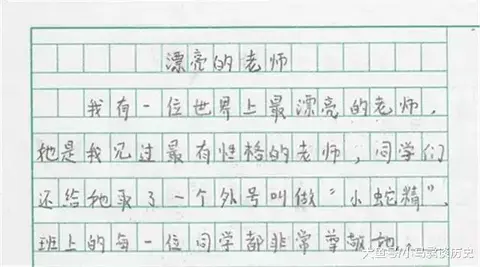 漂亮的老师
我有一位世界上最漂亮的老师,
她是我见过最有性格的老师,同学们
还给她取了一个外号叫做“小蛇精”.
班上的每一位同学都非常尊敬她,
大鱼号/小马袁谈历史